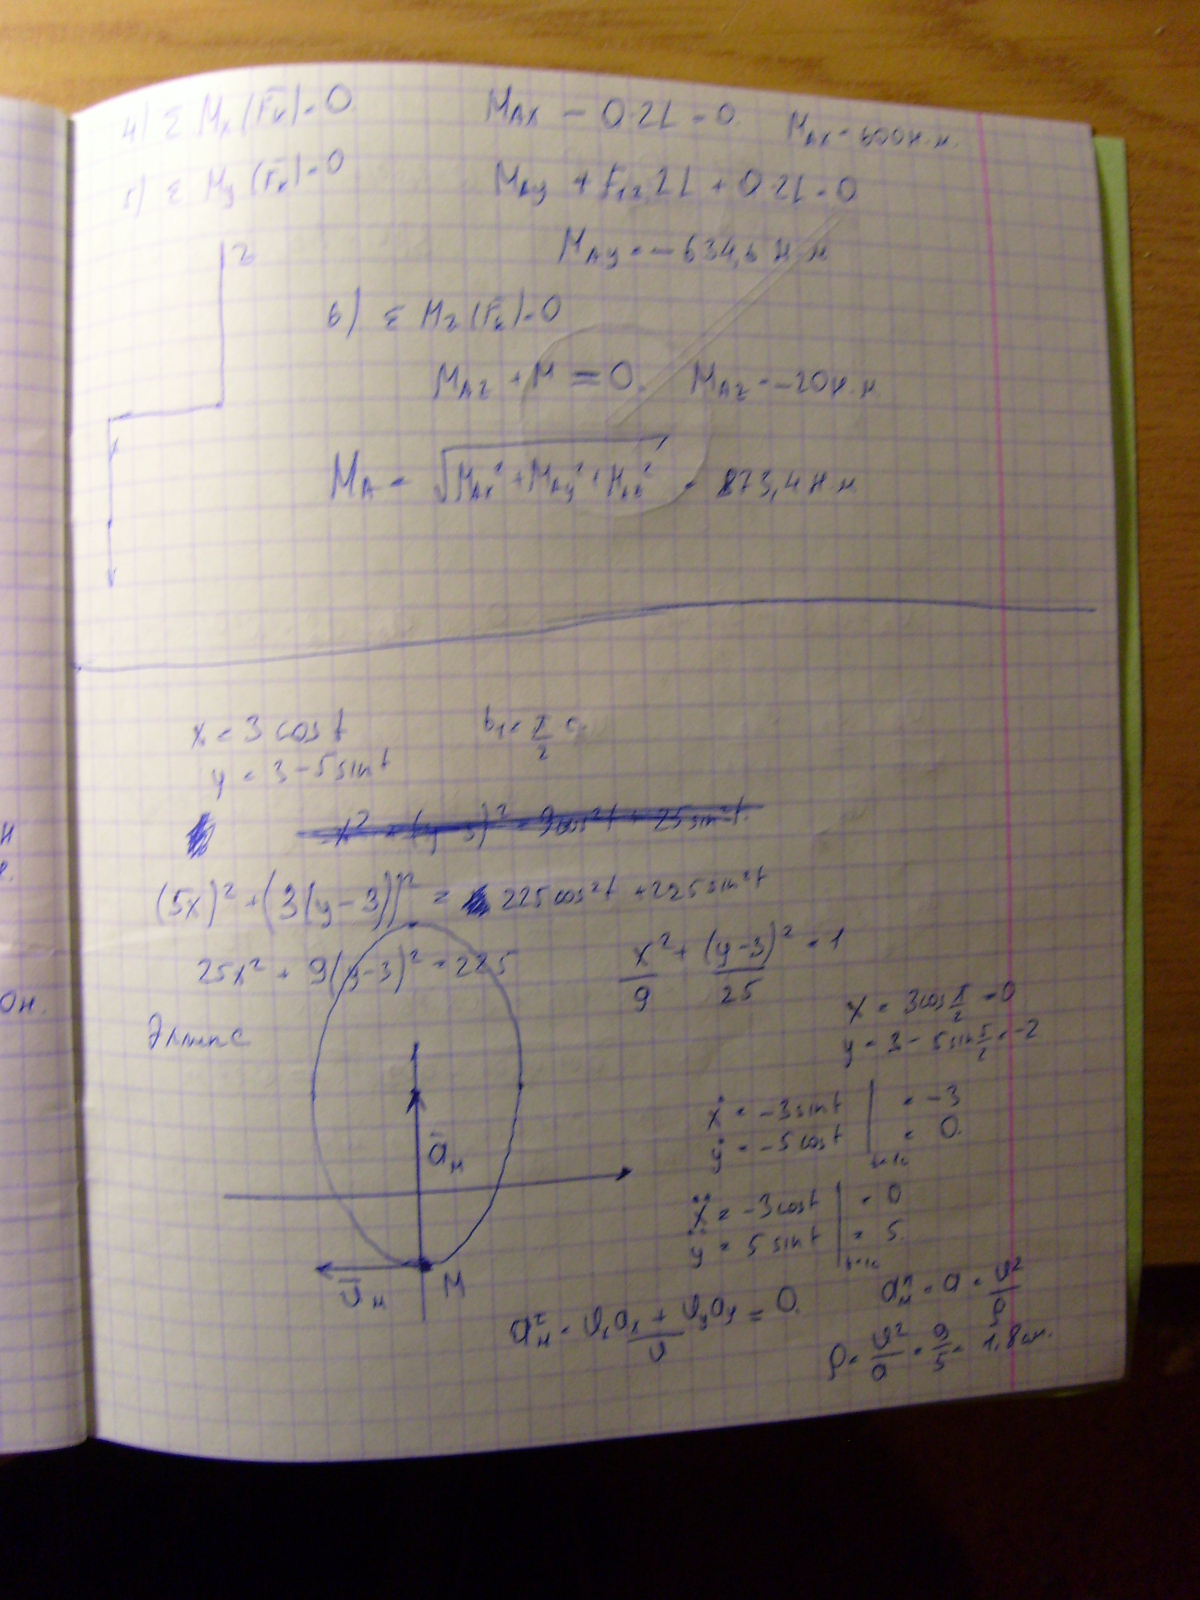 4) Σ Mx(F̄к)=0 MAx − Q·2L = 0. MAx = 600 Н·м.
5) Σ My(F̄к)=0 MAy + F1z·2L + Q·2L = 0
z MAy = −634,6 Н м
6) Σ Mz(F̄к)=0
MAz + M = 0. MAz = −20 Н·м
MA = √(MAx² + MAy² + MAz²) = 873,4 Н м
x = 3 cos t t1 = π/2 c.
y = 3 − 5 sin t
x² + (y−3)² = 9cos²t + 25 sin²t
(5x)² + (3(y−3))² = 225cos²t + 225 sin²t
25x² + 9(y−3)² = 225 x²/9 + (y−3)²/25 = 1
Эллипс
x = 3cos π/2 = 0
y = 3 − 5 sin π/2 = −2
ẋ = −3 sin t = −3
ẏ = −5 cos t = 0.
āм
ẍ = −3cos t = 0
ÿ = 5 sin t = 5.
ῡм M
aмτ = (υx ax + υy ay)/υ = 0. aмn = a = υ²/ρ
ρ = υ²/a = 9/5 = 1,8 см.
н
0н.